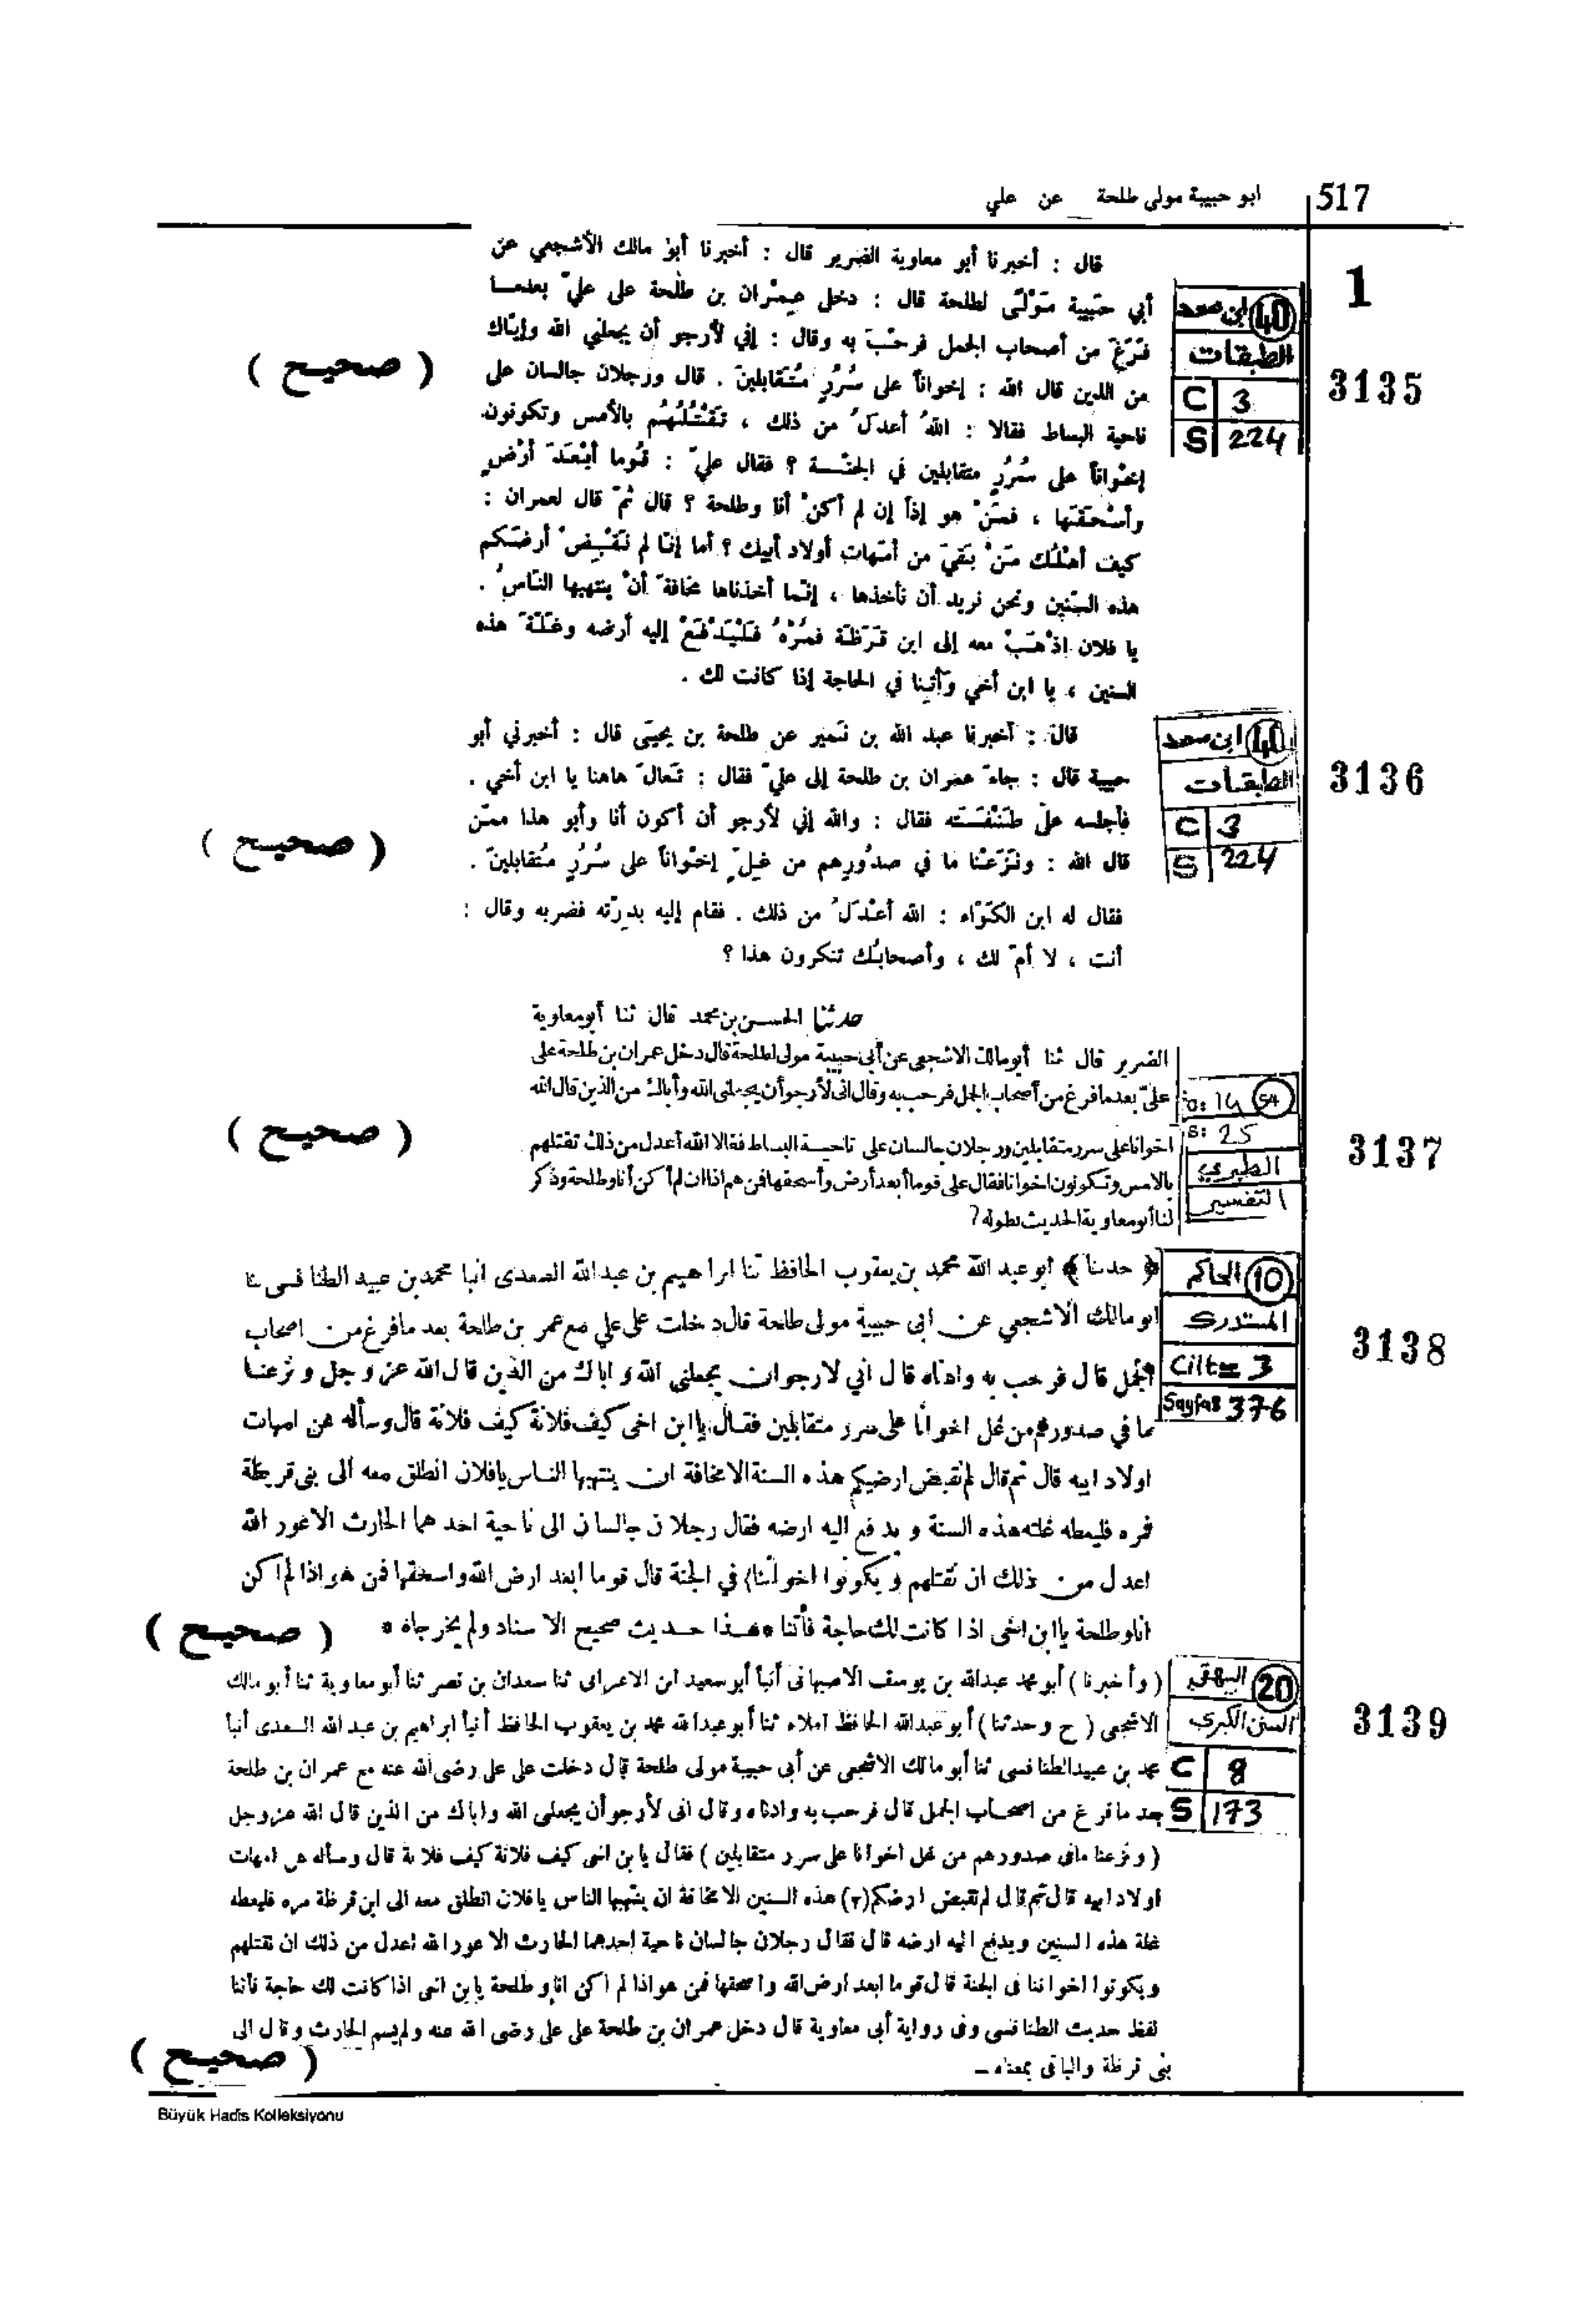 517
ابو حبيبة مولى طلحة _ عن علي
1
قال : أخبرنا أبو معاوية الضرير قال : أخبرنا أبو مالك الأشجعي عن
أبي حَبيبة مَوْلًى لطلحة قال : دخل عِمْران بن طلحة على عليّ بعدمـا
فَرَغَ من أصحاب الجمل فرحّبَ به وقال : إني لأرجو أن يجعلني الله وإيّاك
من الذين قال الله : إخواناً على سُرُرٍ مُتَقابلينَ . قال ورجلان جالسان على
ناحية البساط فقالا : اللهُ أعدلُ من ذلك ، تَقْتُلُهُم بالأمس وتكونون
إخْواناً على سُرُرٍ متقابلين في الجنّـة ؟ فقال عليّ : قُوما أبْعَدَ أرْضٍ
وأسْحَقَها ، فمَنْ هو إذاً إن لم أكنْ أنا وطلحة ؟ قال ثمّ قال لعمران :
كيف أهْلُك مَنْ بَقيَ من أمّهات أولاد أبيك ؟ أما إنّا لم نَقْبِضْ أرضَكم
هذه السّنين ونحن نريد أن نأخذها ، إنّما أخذناها مخافةَ أنْ ينتهبها النّاسُ .
يا فلان اذْهَبْ معه إلى ابن قَرَظَة فمُرْهُ فَلْيَدْفَعْ إليه أرضه وغَلّةَ هذه
السنين ، يا ابن أخي وأتِنا في الحاجة إذا كانت لك .
40 ابن سعد
الطبقات
C 3
S 224
3135
( صحيح )
قال : أخبرنا عبد الله بن نُمير عن طلحة بن يحيَى قال : أخبرني أبو
حبيبة قال : جاءَ عمران بن طلحة إلى عليّ فقال : تَعالَ هاهنا يا ابن أخي .
فأجلسه على طَنْفَسَته فقال : والله إني لأرجو أن أكون أنا وأبو هذا ممّن
قال الله : ونَزَعْنا ما في صدُورِهم من غِلٍّ إخْواناً على سُرُرٍ مُتقابلينَ .
فقال له ابن الكَوّاء : الله أعْدَلُ من ذلك . فقام إليه بدِرّته فضربه وقال :
أنت ، لا أمّ لك ، وأصحابُك تنكرون هذا ؟
40 ابن سعد
الطبقات
C 3
S 224
3136
( صحيح )
حدثنا الحسن بن محمد قال ثنا أبو معاوية
الضرير قال ثنا أبو مالك الاشجعى عن أبى حبيبة مولى لطلحة قال دخل عمران بن طلحة على
علىّ بعد ما فرغ من أصحاب الجمل فرحب به وقال انى لأرجو أن يجعلنى الله وأباك من الذين قال الله
اخوانا على سرر متقابلين ورجلان جالسان على ناحيـة البساط فقالا الله أعدل من ذلك تقتلهم
بالامس وتكونون اخوانا فقال على قوما أبعد أرض وأسحقها فمن هم اذا ان لم أكن أنا وطلحة وذكر
لنا أبو معاوية الحديث بطوله ?
54 14
S: 25
الطبري
التفسير
3137
( صحيح )
﴿ حدثنا ﴾ ابو عبد الله محمد بن يعقوب الحافظ ثنا ابراهيم بن عبد الله السعدى انبا محمد بن عبيد الطنافسى ثنا
ابو مالك الاشجعي عن ابى حبيبة مولى طلحة قال دخلت على علي مع عمر بن طلحة بعد ما فرغ من اصحاب
الجمل قال فرحب به وادناه قال اني لارجو ان يجعلنى الله و اباك من الذين قال الله عز و جل و نزعنا
ما في صدورهم من غل اخوانا على سرر متقابلين فقال يا ابن اخى كيف فلانة كيف فلانة قال وسأله عن امهات
اولاد ابيه قال ثم قال لم نقبض ارضيكم هذه السنة الا مخافة ان ينتهبها الناس يا فلان انطلق معه الى بنى قريظة
فمره فليعطه غلته هذه السنة و يدفع اليه ارضه فقال رجلان جالسان الى ناحية احدهما الحارث الاعور الله
اعدل من ذلك ان نقتلهم و يكونوا اخواننا في الجنة قال قوما ابعد ارض الله واسحقها فمن هو اذا لم اكن
انا وطلحة يا ابن اخى اذا كانت لك حاجة فأتنا * هذا حديث صحيح الاسناد ولم يخرجاه *
10 الحاكم
المستدرك
Cilt= 3
Sayfa: 376
3138
( صحيح )
( وأخبرنا ) أبو محمد عبدالله بن يوسف الاصبهانى أنبأ أبو سعيد ابن الاعرابى ثنا سعدان بن نصر ثنا أبو معاوية ثنا أبو مالك
الاشجعى ( ح وحدثنا ) أبو عبدالله الحافظ املاء ثنا أبو عبدالله محمد بن يعقوب الحافظ أنبأ ابراهيم بن عبد الله السعدى أنبأ
محمد بن عبيد الطنافسى ثنا أبو مالك الاشجعى عن أبى حبيبة مولى طلحة قال دخلت على على رضى الله عنه مع عمران بن طلحة
بعد ما فرغ من اصحاب الجمل قال فرحب به وادناه وقال انى لأرجو أن يجعلنى الله واباك من الذين قال الله عز وجل
( ونزعنا ما فى صدورهم من غل اخوانا على سرر متقابلين ) فقال يا بن اخى كيف فلانة كيف فلانة قال وسأله عن امهات
اولاد ابيه قال ثم قال لم نقبض ارضكم (٢) هذه السنين الا مخافة ان ينتهبها الناس يا فلان انطلق معه الى ابن قرظة مره فليعطه
غلة هذه السنين ويدفع اليه ارضه قال فقال رجلان جالسان ناحية احدهما الحارث الاعور الله اعدل من ذلك ان نقتلهم
ويكونوا اخواننا فى الجنة قال قوما ابعد ارض الله واسحقها فمن هو اذا لم اكن انا وطلحة يا بن اخى اذا كانت لك حاجة فأتنا
لفظ حديث الطنافسى وفى رواية أبى معاوية قال دخل عمران بن طلحة على على رضى الله عنه ولم يسم الحارث وقال الى
بنى قرظة والباقى بمعناه -
20 البيهقي
السنن الكبرى
C 8
S 173
3139
( صحيح )
Büyük Hadis Kolleksiyonu